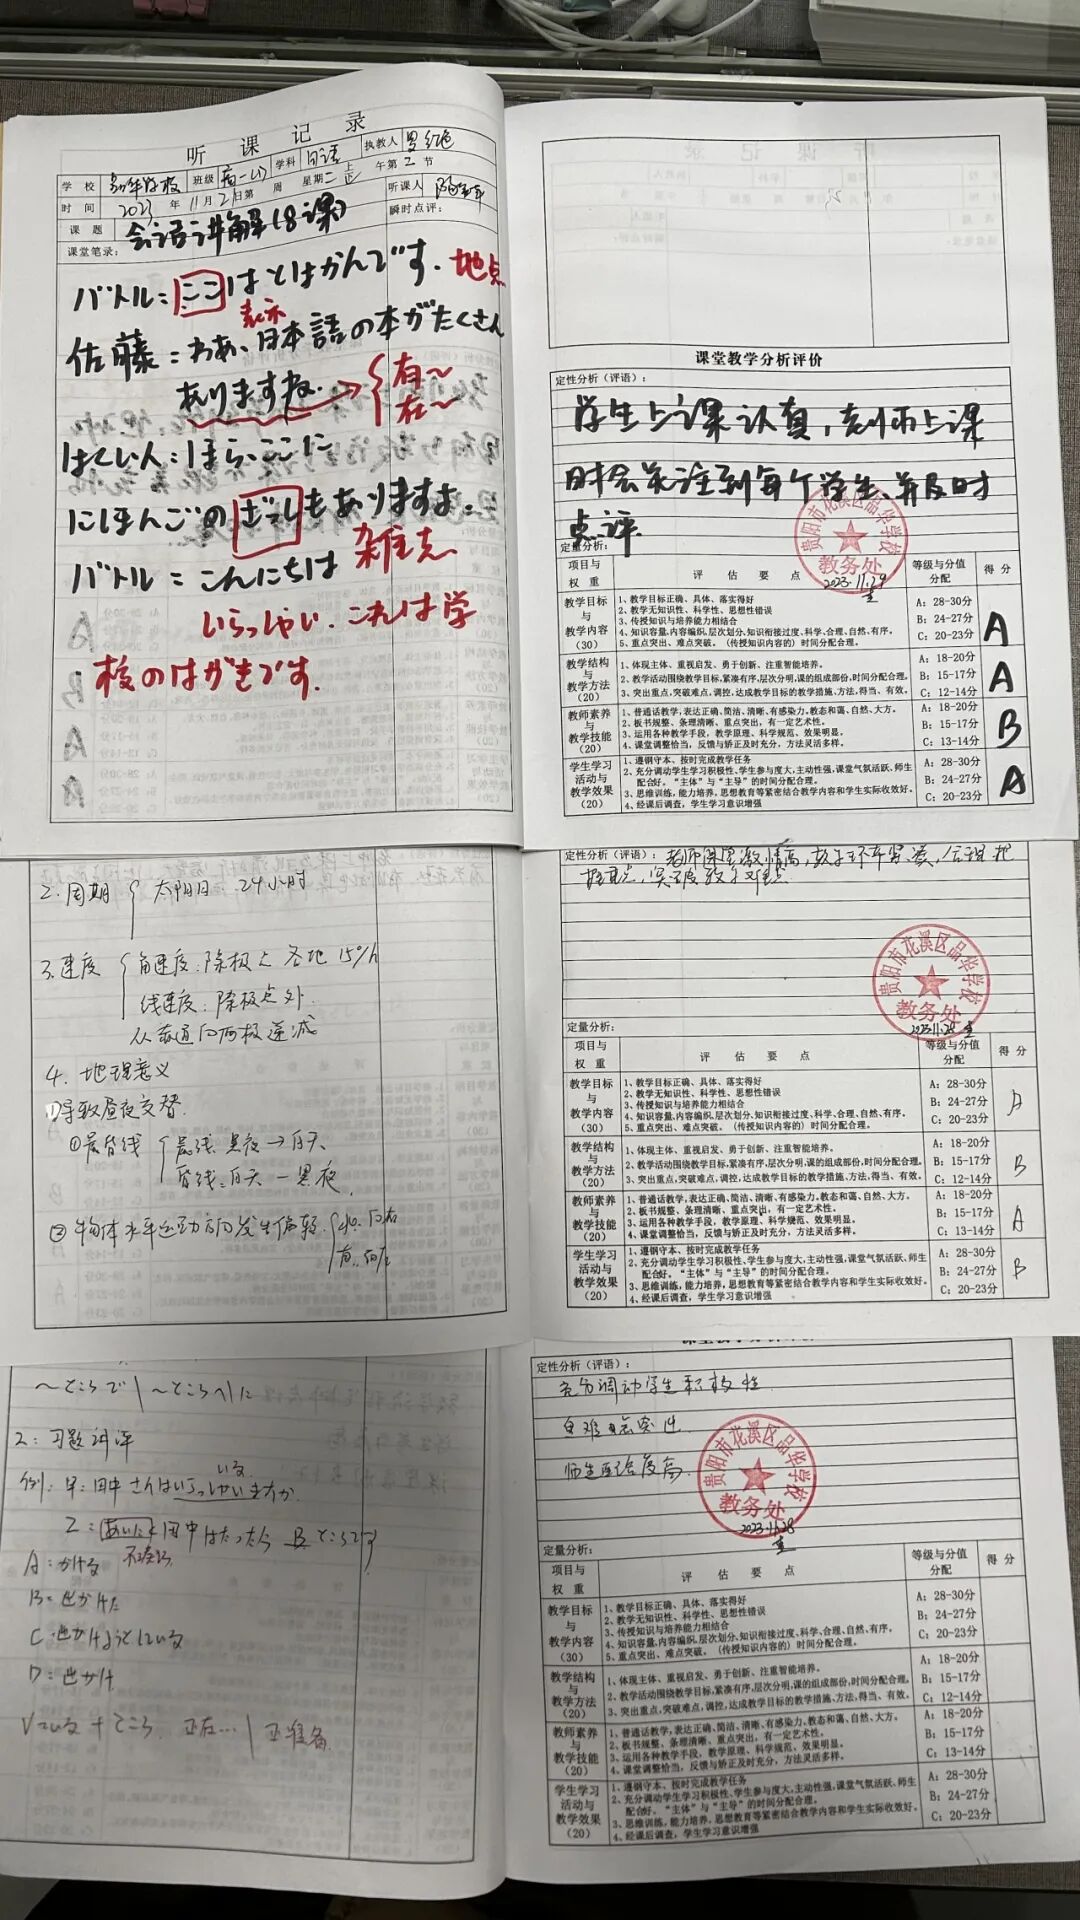 听 课 记 录
学 校 班级 高一(1) 学科 日语 执教人
时 间 2023年 11月2 日第 周 星期二 上 午第 2 节 听课人
课 题 会话讲解(8课)
瞬时点评:
课堂笔录:
バトル:ここはとはかんです. 地点
表示
佐藤:わあ、日本語の本がたくさん
ありますね. 有～
在～
はくい人:ほら、ここに
にほんごのざっしもありますよ.
バトル = こんにちは 杂志
いらっしゃい. これは学
校のはがきです.
课堂教学分析评价
定性分析(评语):
学生上课认真,老师上课
时会关注到每个学生、并及时
点评.
贵阳市花溪区品华学校
教务处
2023.11.29
定量分析:
项目与权重 评 估 要 点 等级与分值分配 得 分
教学目标与教学内容(30)
1、教学目标正确、具体、落实得好
2、教学无知识性、科学性、思想性错误
3、传授知识与培养能力相结合
4、知识容量,内容编织,层次划分,知识衔接过度、科学、合理、自然、有序。
5、重点突出、难点突破。(传授知识内容的)时间分配合理。
A: 28-30分
B: 24-27分
C: 20-23分
A
教学结构与教学方法(20)
1、体现主体、重视启发、勇于创新、注重智能培养。
2、教学活动围绕教学目标,紧凑有序,层次分明,课的组成部份,时间分配合理。
3、突出重点,突破难点,调控,达成教学目标的教学措施、方法,得当、有效。
A: 18-20分
B: 15-17分
C: 12-14分
A
教师素养与教学技能(20)
1、普通话教学,表达正确、简洁、清晰、有感染力,教态和蔼、自然、大方。
2、板书规整、条理清晰、重点突出,有一定艺术性。
3、运用各种教学手段,教学原理、科学规范、效果明显。
4、课堂调整恰当,反馈与矫正及时充分,方法灵活多样。
A: 18-20分
B: 15-17分
C: 13-14分
B
学生学习活动与教学效果(20)
1、遵钢守本、按时完成教学任务
2、充分调动学生学习积极性、学生参与度大,主动性强,课堂气氛活跃、师生配合好。“主体”与“主导”的时间分配合理。
3、思维训练,能力培养,思想教育等紧密结合教学内容和学生实际收效好。
4、经课后调查,学生学习意识增强
A: 28-30分
B: 24-27分
C: 20-23分
A
2. 周期 太阳日 24小时
3. 速度 角速度:除极点 各地 15°/h
线速度:除极点外.
从赤道向两极递减
4. 地理意义
1)导致昼夜交替.
①晨昏线 晨线:黑夜→白天
昏线:白天一黑夜.
②物体水平运动方向发生偏转. 北.向右
南..向左
定性分析(评语):
贵阳市花溪区品华学校
教务处
2023.11.28
定量分析:
项目与权重 评 估 要 点 等级与分值分配 得 分
教学目标与教学内容(30)
1、教学目标正确、具体、落实得好
2、教学无知识性、科学性、思想性错误
3、传授知识与培养能力相结合
4、知识容量,内容编织,层次划分,知识衔接过度、科学、合理、自然、有序。
5、重点突出、难点突破。(传授知识内容的)时间分配合理。
A: 28-30分
B: 24-27分
C: 20-23分
A
教学结构与教学方法(20)
1、体现主体、重视启发、勇于创新、注重智能培养。
2、教学活动围绕教学目标,紧凑有序,层次分明,课的组成部份,时间分配合理。
3、突出重点,突破难点,调控,达成教学目标的教学措施、方法,得当、有效。
A: 18-20分
B: 15-17分
C: 12-14分
B
教师素养与教学技能(20)
1、普通话教学,表达正确、简洁、清晰、有感染力,教态和蔼、自然、大方。
2、板书规整、条理清晰、重点突出,有一定艺术性。
3、运用各种教学手段,教学原理、科学规范、效果明显。
4、课堂调整恰当,反馈与矫正及时充分,方法灵活多样。
A: 18-20分
B: 15-17分
C: 13-14分
A
学生学习活动与教学效果(20)
1、遵钢守本、按时完成教学任务
2、充分调动学生学习积极性、学生参与度大,主动性强,课堂气氛活跃、师生配合好。“主体”与“主导”的时间分配合理。
3、思维训练,能力培养,思想教育等紧密结合教学内容和学生实际收效好。
4、经课后调查,学生学习意识增强
A: 28-30分
B: 24-27分
C: 20-23分
B
～ところで | ～ところへ | に
2: 习题讲评
いる
例: 甲:田中さんはいらっしゃいますか
乙: あいにく田中はたった今 B ところです
不凑巧
A: かける
B: 出かけた
C: 出かけようとしている
D: 出かけ
Vている + ところ 正在… | 正准备
定性分析(评语):
充分调动学生积极性
重难点突出
师生配合度高
贵阳市花溪区品华学校
教务处
2023.11.28
定量分析:
项目与权重 评 估 要 点 等级与分值分配 得 分
教学目标与教学内容(30)
1、教学目标正确、具体、落实得好
2、教学无知识性、科学性、思想性错误
3、传授知识与培养能力相结合
4、知识容量,内容编织,层次划分,知识衔接过度、科学、合理、自然、有序。
5、重点突出、难点突破。(传授知识内容的)时间分配合理。
A: 28-30分
B: 24-27分
C: 20-23分
教学结构与教学方法(20)
1、体现主体、重视启发、勇于创新、注重智能培养。
2、教学活动围绕教学目标,紧凑有序,层次分明,课的组成部份,时间分配合理。
3、突出重点,突破难点,调控,达成教学目标的教学措施、方法,得当、有效。
A: 18-20分
B: 15-17分
C: 12-14分
教师素养与教学技能(20)
1、普通话教学,表达正确、简洁、清晰、有感染力,教态和蔼、自然、大方。
2、板书规整、条理清晰、重点突出,有一定艺术性。
3、运用各种教学手段,教学原理、科学规范、效果明显。
4、课堂调整恰当,反馈与矫正及时充分,方法灵活多样。
A: 18-20分
B: 15-17分
C: 13-14分
学生学习活动与教学效果(20)
1、遵钢守本、按时完成教学任务
2、充分调动学生学习积极性、学生参与度大,主动性强,课堂气氛活跃、师生配合好。“主体”与“主导”的时间分配合理。
3、思维训练,能力培养,思想教育等紧密结合教学内容和学生实际收效好。
4、经课后调查,学生学习意识增强
A: 28-30分
B: 24-27分
C: 20-23分